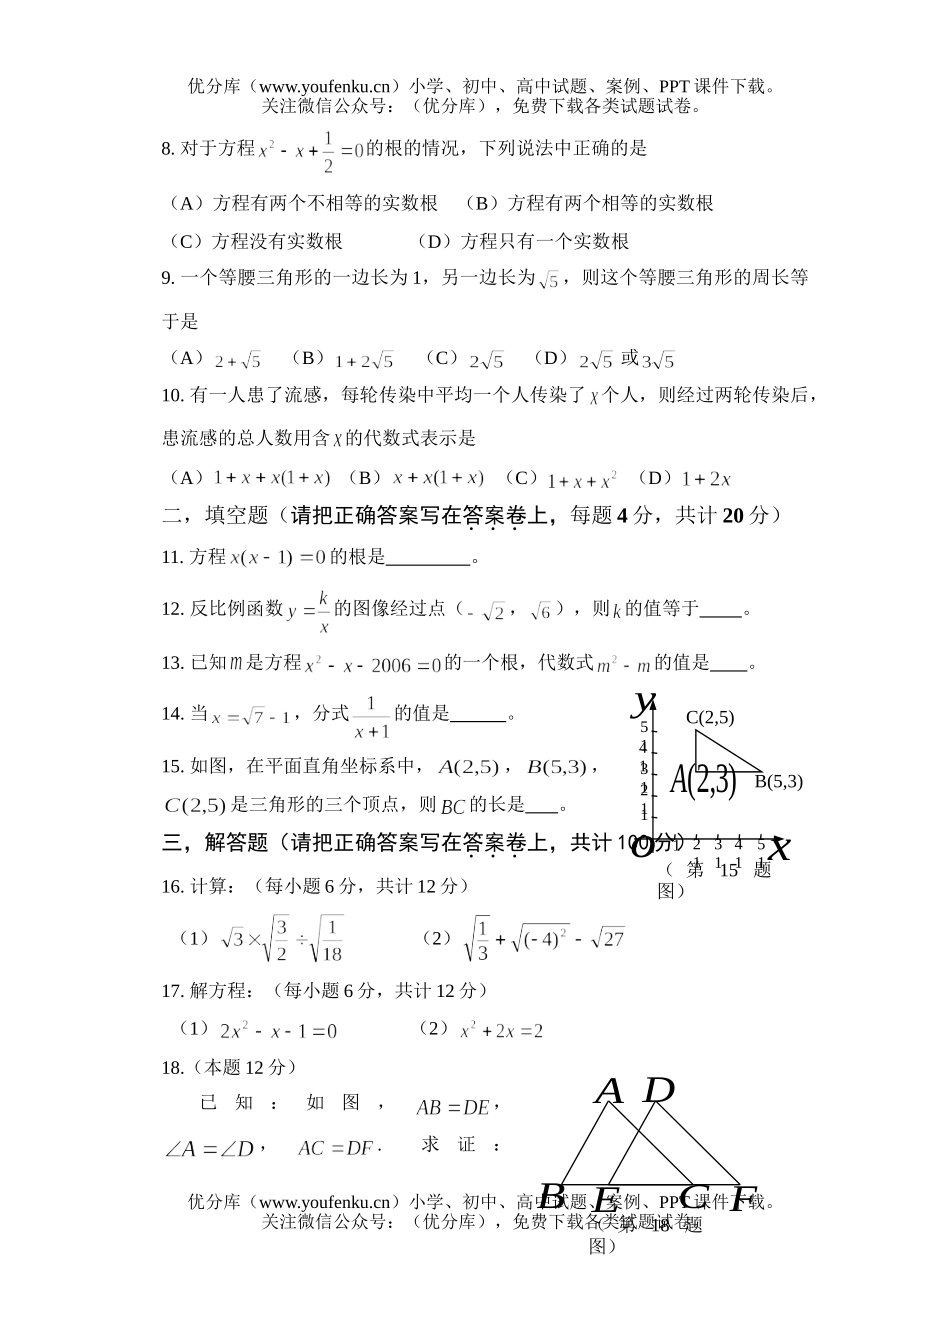 优分库（www.youfenku.cn）小学、初中、高中试题、案例、PPT 课件下载。
关注微信公众号：（优分库），免费下载各类试题试卷。
8. 对于方程 x² - x + 1/2 = 0 的根的情况，下列说法中正确的是
（A）方程有两个不相等的实数根 （B）方程有两个相等的实数根
（C）方程没有实数根 （D）方程只有一个实数根
9. 一个等腰三角形的一边长为 1，另一边长为 √5 ，则这个等腰三角形的周长等
于是
（A） 2+√5 （B） 1+2√5 （C） 2√5 （D） 2√5 或 3√5
10. 有一人患了流感，每轮传染中平均一个人传染了 x 个人，则经过两轮传染后，
患流感的总人数用含 x 的代数式表示是
（A） 1+x+x(1+x) （B） x+x(1+x) （C） 1+x+x² （D） 1+2x
二，填空题（请把正确答案写在答案卷上，每题 4 分，共计 20 分）
11. 方程 x(x-1)=0 的根是_________。
12. 反比例函数 y = k/x 的图像经过点（ -√2 ， √6 ），则 k 的值等于____。
13. 已知 m 是方程 x² - x - 2006 = 0 的一个根，代数式 m² - m 的值是____。
14. 当 x = √7 - 1 ，分式 1/(x+1) 的值是______。
15. 如图，在平面直角坐标系中， A(2,5) ， B(5,3) ，
C(2,5) 是三角形的三个顶点，则 BC 的长是___。
y
5
1
4
1
3
1
2
1
1
C(2,5)
A(2,3)
B(5,3)
o
1
2
1
3
1
4
1
5
1
x
（ 第 15 题
图）
三，解答题（请把正确答案写在答案卷上，共计 100 分）
16. 计算：（每小题 6 分，共计 12 分）
（1） √3 × √(3/2) ÷ √(1/18) （2） √(1/3) + √((-4)²) - √27
17. 解方程：（每小题 6 分，共计 12 分）
（1） 2x² - x - 1 = 0 （2） x² + 2x = 2
18.（本题 12 分）
已 知 ： 如 图 ， AB = DE ，
∠A = ∠D ， AC = DF . 求 证 ：
A D
B E C F
（ 第 18 题
图）
优分库（www.youfenku.cn）小学、初中、高中试题、案例、PPT 课件下载。
关注微信公众号：（优分库），免费下载各类试题试卷。